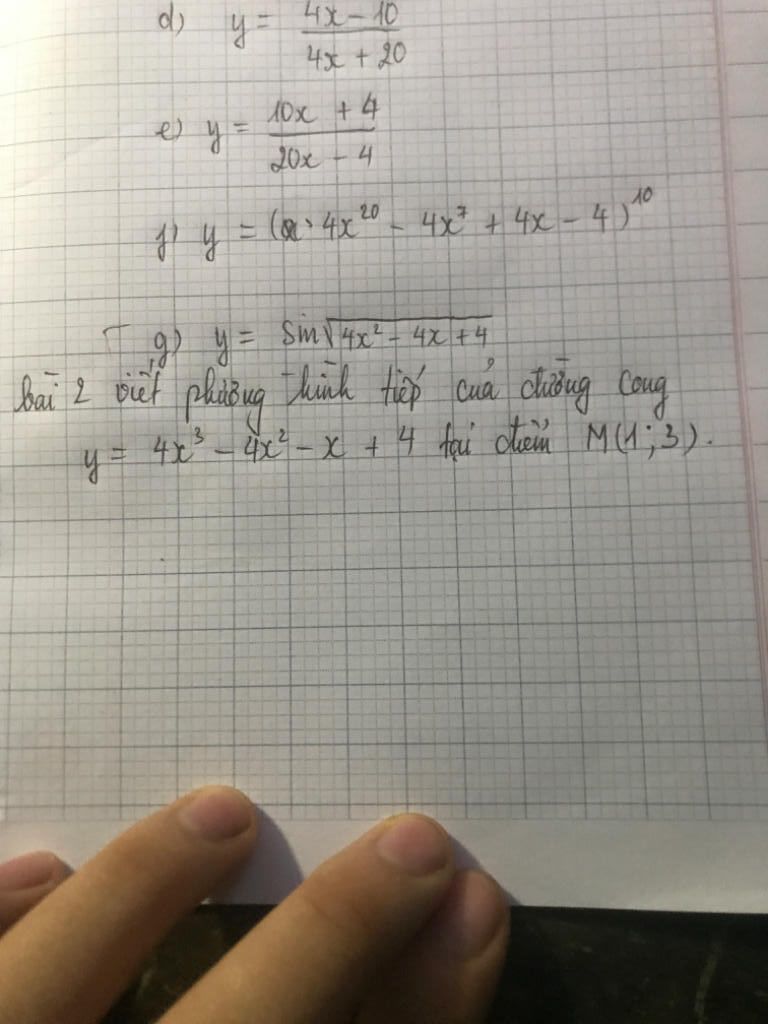 d) y = (4x - 10)/(4x + 20)
e) y = (10x + 4)/(20x - 4)
f) y = (4x²⁰ - 4x⁷ + 4x - 4)¹⁰
g) y = sin√(4x² - 4x + 4)
bài 2 viết phương trình tiếp của đường cong
y = 4x³ - 4x² - x + 4 tại điểm M(1; 3).